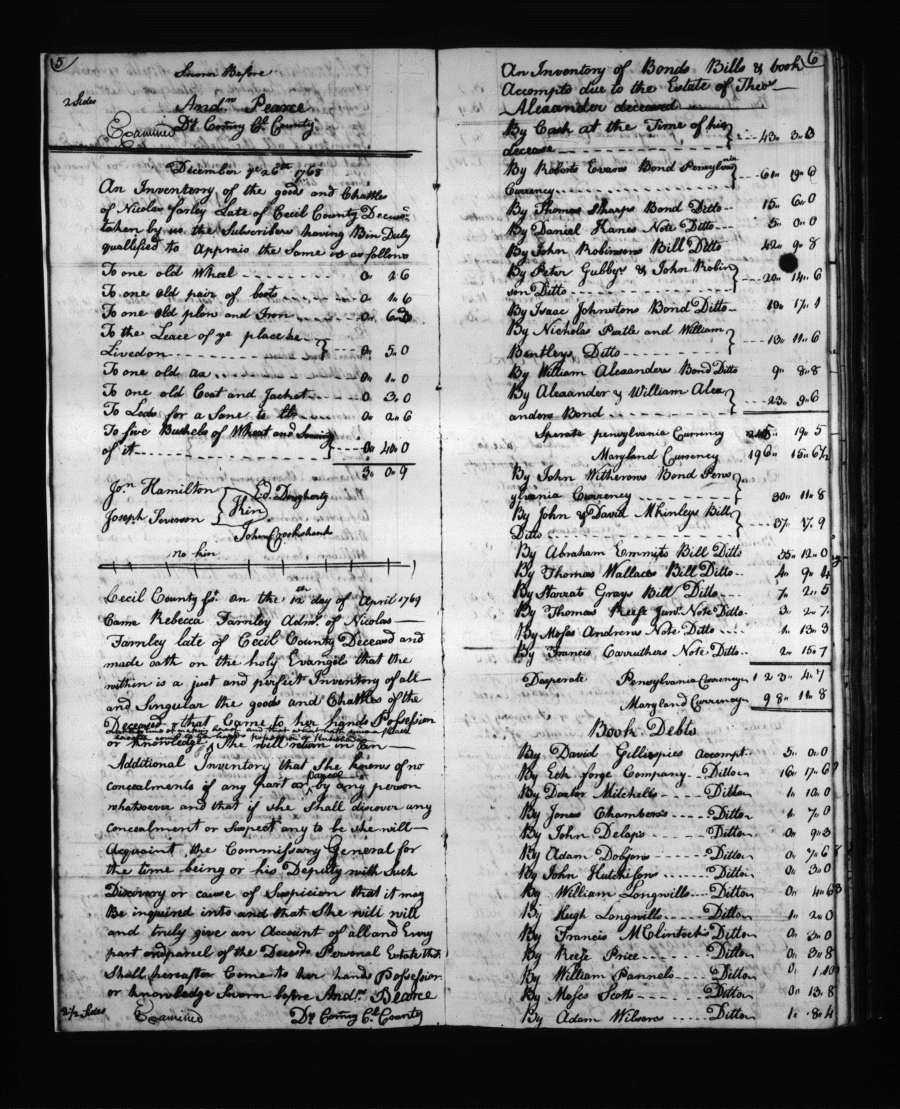 5
Sworn Before
2 Sides
And.w Pearce
Examined Dy Com.ry Cl County
December ye 26th 1768
An Inventory of the goods and Chattles
of Nicolas farley Late of Cecil County Deceas.d
taken by us the Subscribers having Bin Duly
qualified to Apprais the Same is as follows
To one old Wheel 0. 2 6
To one old pair of boots 0. 1. 6
To one old plow and Iron 0. 6.
To the Leace of ye place he
Lived on 0. 5. 0
To one old ax 0. 1. 0
To one old Coat and Jacket 0. 3. 0
To 0. 2. 6
To five Bushels of Wheat and Sowing
of it
3. 0. 9
Jon Hamilton
Ed. Dougherty
Kin
Joseph Severson
John Crookshank
no kin
Cecil County Ss. on the 12th day of April 1769
Came Rebecca Farnley Adm.x of Nicolas
Farnley late of Cecil County Deceased and
made oath on the holy Evangels that the
within is a just and perfect Inventory of all
and Singular the goods and Chattles of the
Deceased that Came to her hands Possession
or knowledge She will return in an
Additional Inventory that She knows of no
concealments of any part or parcel by any person
whatsoever and that if She Shall discover any
concealment or Suspect any to be She will
Acquaint the Commissary General for
the time being or his Deputy with Such
Discovery or cause of Suspicion that it may
Be inquired into and that She will will
and truly give an Account of all and Every
part and parcel of the Deceds Personal Estate that
Shall hereafter Come to her hands Possession
or knowledge Sworn before And.w Pearce
2/2 Sides Examined Dy Com.ry Cl County
6
An Inventory of Bonds Bills & book
Accompts due to the Estate of Theos
Alexander deceased
By Cash at the Time of his
decease 43. 3. 3
By Roberts Evans Bond Pensylvania
Currency 61. 19. 6
By Thomas Sharps Bond Ditto 15. 6. 0
By Daniel Hanes Note Ditto 5. 0. 0
By John Robinsons Bill Ditto 42. 9. 8
By Peter Gulbys & John Robin
son Ditto 20. 14. 6
By Isaac Johnstons Bond Ditto 10. 17. 1
By Nicholas and William
Bentleys Ditto 13. 11. 6
By William Alexanders Bond Ditto 9. 8. 8
By Alexander & William Alex
anders Bond 23. 9. 6
Sperate pensylvania Currency 245. 19. 5
Maryland Currency 196. 15. 6½
By John Witherows Bond Pens
ylvania Currency 30. 11. 8
By John & David Mkinleys Bill
Ditto 37. 17. 9
By Abraham Emmits Bill Ditto 35. 12. 0
By Thomas Wallace Bill Ditto 4. 9. 4
By Grays Bill Ditto 7. 2. 5
By Thomas Reese Junr. Note Ditto 3. 2. 7
By Moses Andrews Note Ditto 1. 13. 3
By Francis Carruthers Note Ditto 2. 15. 7
Desperate Pensylvania Currency 123. 4. 7
Maryland Currency 98. 11. 8
Book Debts
By David Gillispies accompt. 5. 0. 0
By Elk forge Company Ditto 16. 17. 6
By Doctor Mitchells Ditto 1. 10. 0
By Jonas Chambers Ditto 1. 7. 0
By John Delaps Ditto 0. 9. 3
By Adam Dobsons Ditto 0. 7. 6
By John Hutchisons Ditto 0. 3. 0
By William Longwills Ditto 0. 4. 6
By Hugh Longwills Ditto 1. 2. 0
By Francis McClintocks Ditto 0. 3. 0
By Reese Price Ditto 0. 3. 8
By William Pannels Ditto 0. 1. 10
By Moses Scotts Ditto 0. 13. 8
By Adam Wilsons Ditto 1. 8. 4